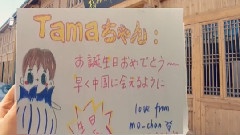 Tamaちゃん:
お誕生日おめでとう〜
早く中国に会えるように
love from
mo-chan